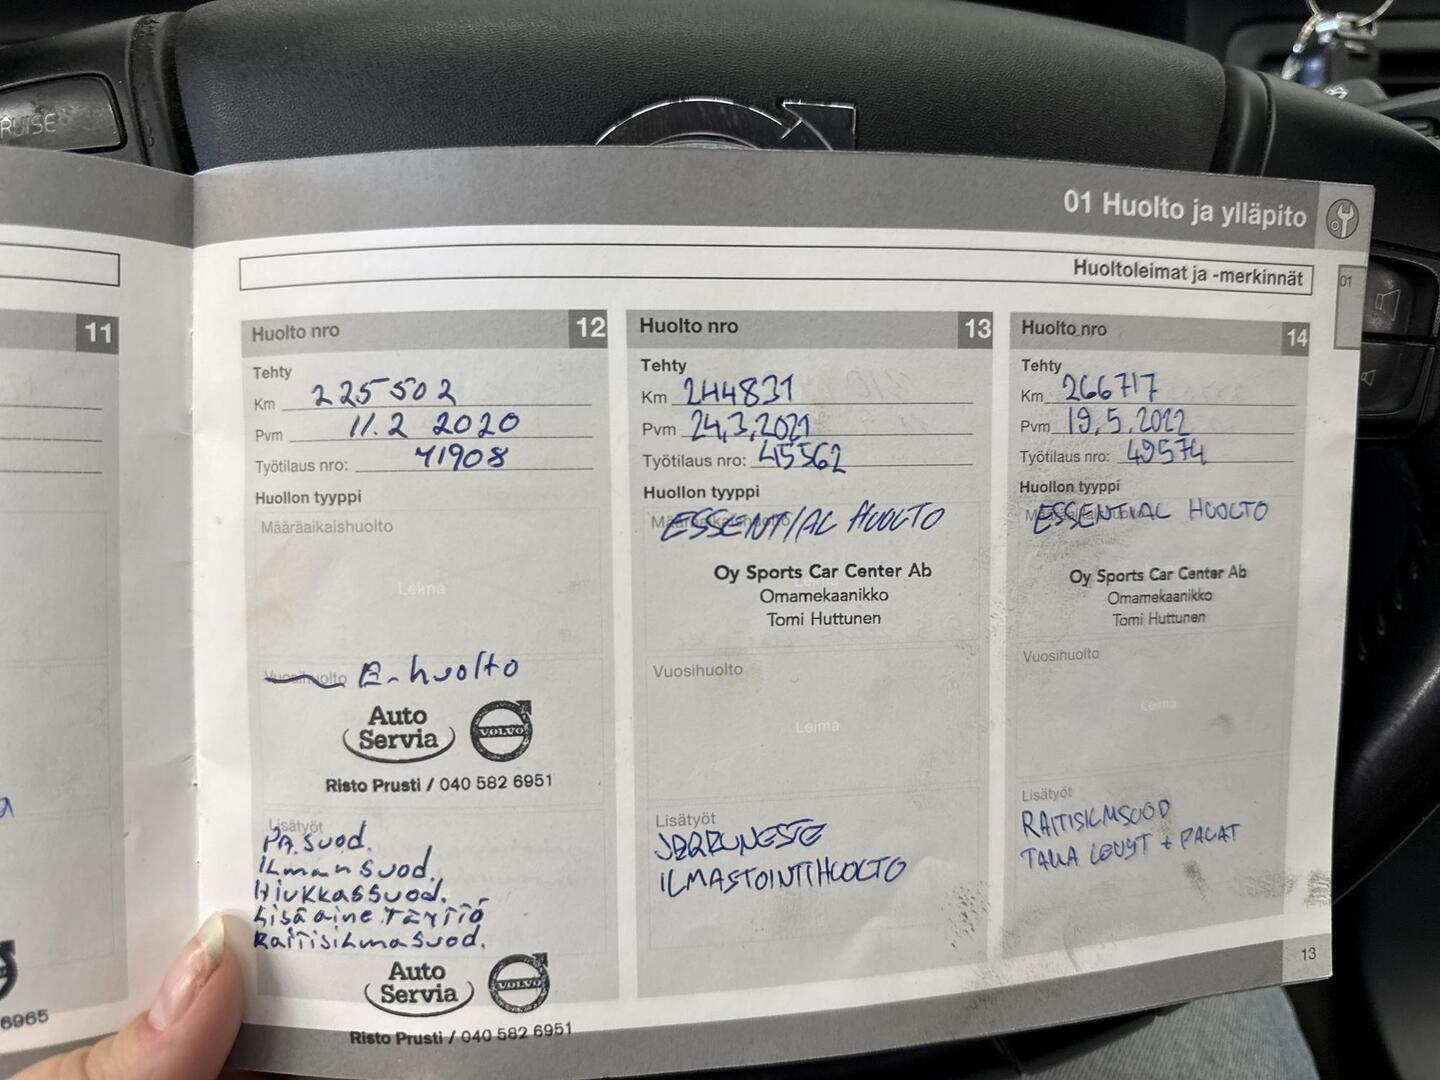 RUISE
01 Huolto ja ylläpito
Huoltoleimat ja -merkinnät
01
11
6965
Huolto nro 12
Tehty
Km 225502
Pvm 11.2 2020
Työtilaus nro: 41908
Huollon tyyppi
Määräaikaishuolto
Leima
Vuosihuolto E-huolto
Auto
Servia
VOLVO
Risto Prusti / 040 582 6951
Lisätyöt
PA.suod.
ilman suod.
Hiukkassuod.
Lisä aine täyttö
Raitisilmasuod.
Auto
Servia
VOLVO
Risto Prusti / 040 582 6951
Huolto nro 13
Tehty
Km 244831
Pvm 24.3.2021
Työtilaus nro: 45562
Huollon tyyppi
Määräaikaishuolto
ESSENTIAL HUOLTO
Leima
Oy Sports Car Center Ab
Omamekaanikko
Tomi Huttunen
Vuosihuolto
Leima
Lisätyöt
JARRUNESTE
ILMASTOINTIHUOLTO
Huolto nro 14
Tehty
Km 266717
Pvm 19.5.2022
Työtilaus nro: 49574
Huollon tyyppi
Määräaikaishuolto
ESSENTIAL HUOLTO
Oy Sports Car Center Ab
Omamekaanikko
Tomi Huttunen
Vuosihuolto
Leima
Lisätyöt
RAITISILMSUOD
TAKA LEVYT + PALAT
13